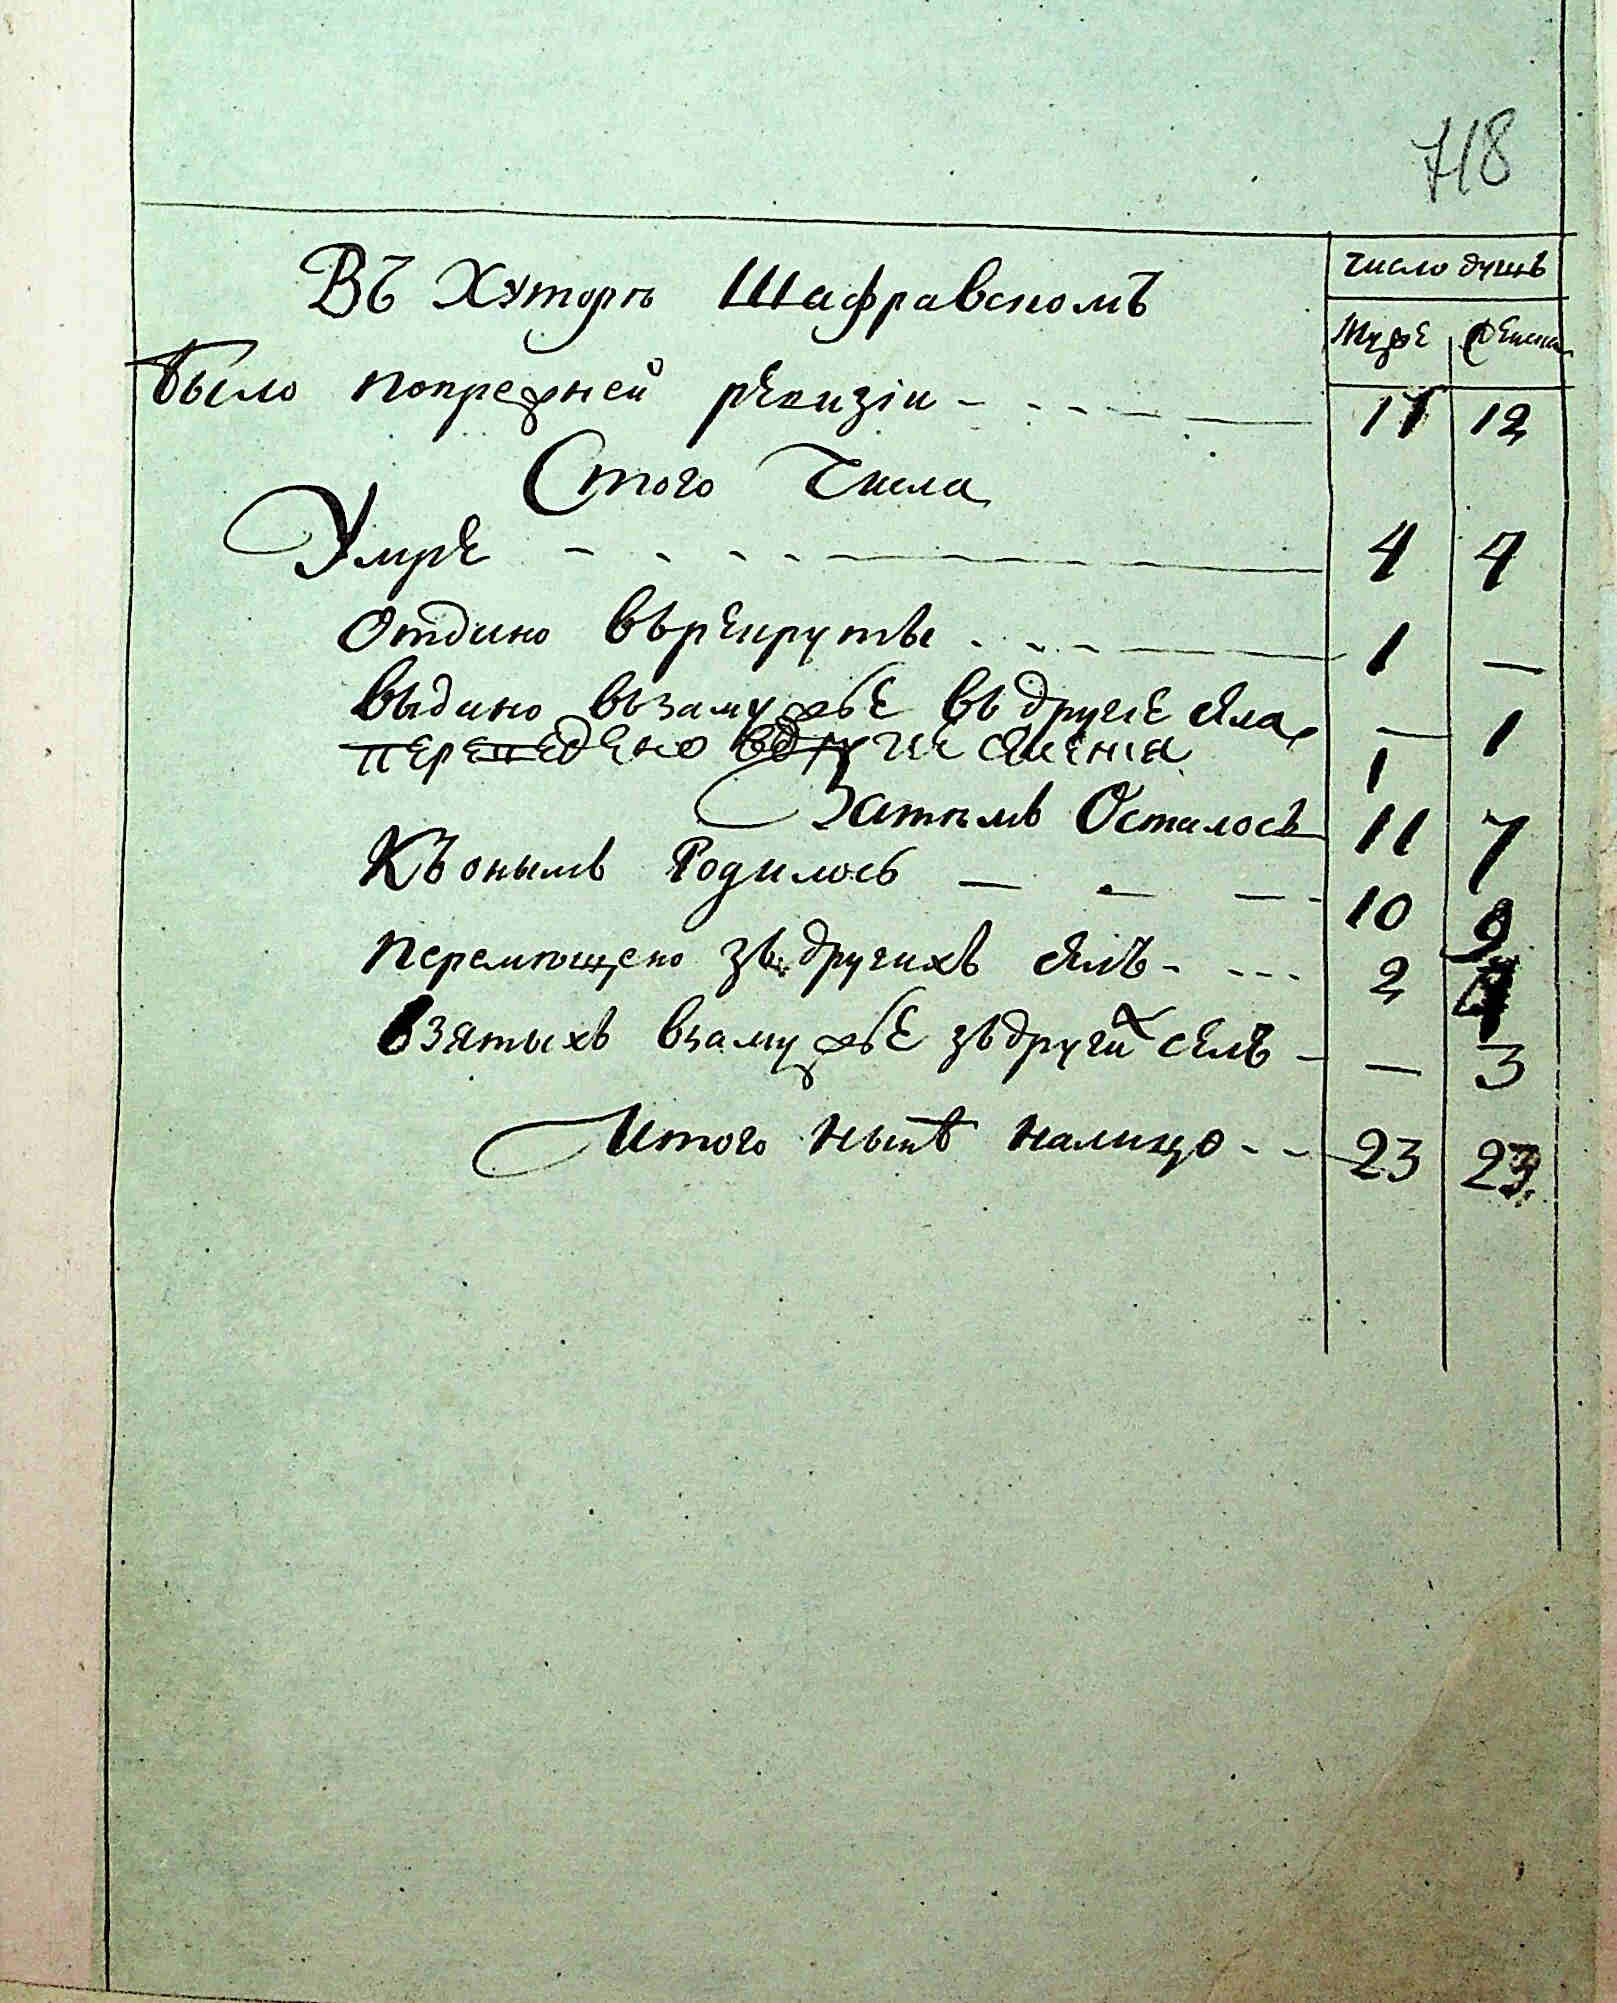 718
Число душъ
Въ Хуторѣ Шафравскомъ
Мужс Женска
Было попрежней ревизіи - - - - 17 12
Стого Числа
Умре - - - - 4 4
Отдано въ рекруты - - - 1 —
выдано въ замужье въ другіе села — 1
переведено въдругіе селенія 1
Затѣмъ Осталось 11 7
Къ онымъ Родилось — — — 10 9
перемѣщено зъ другихъ селъ - - - - 2 4
взятыхъ взамужье зъ другихъ селъ - — 3
Итого нынѣ налицо - - 23 23